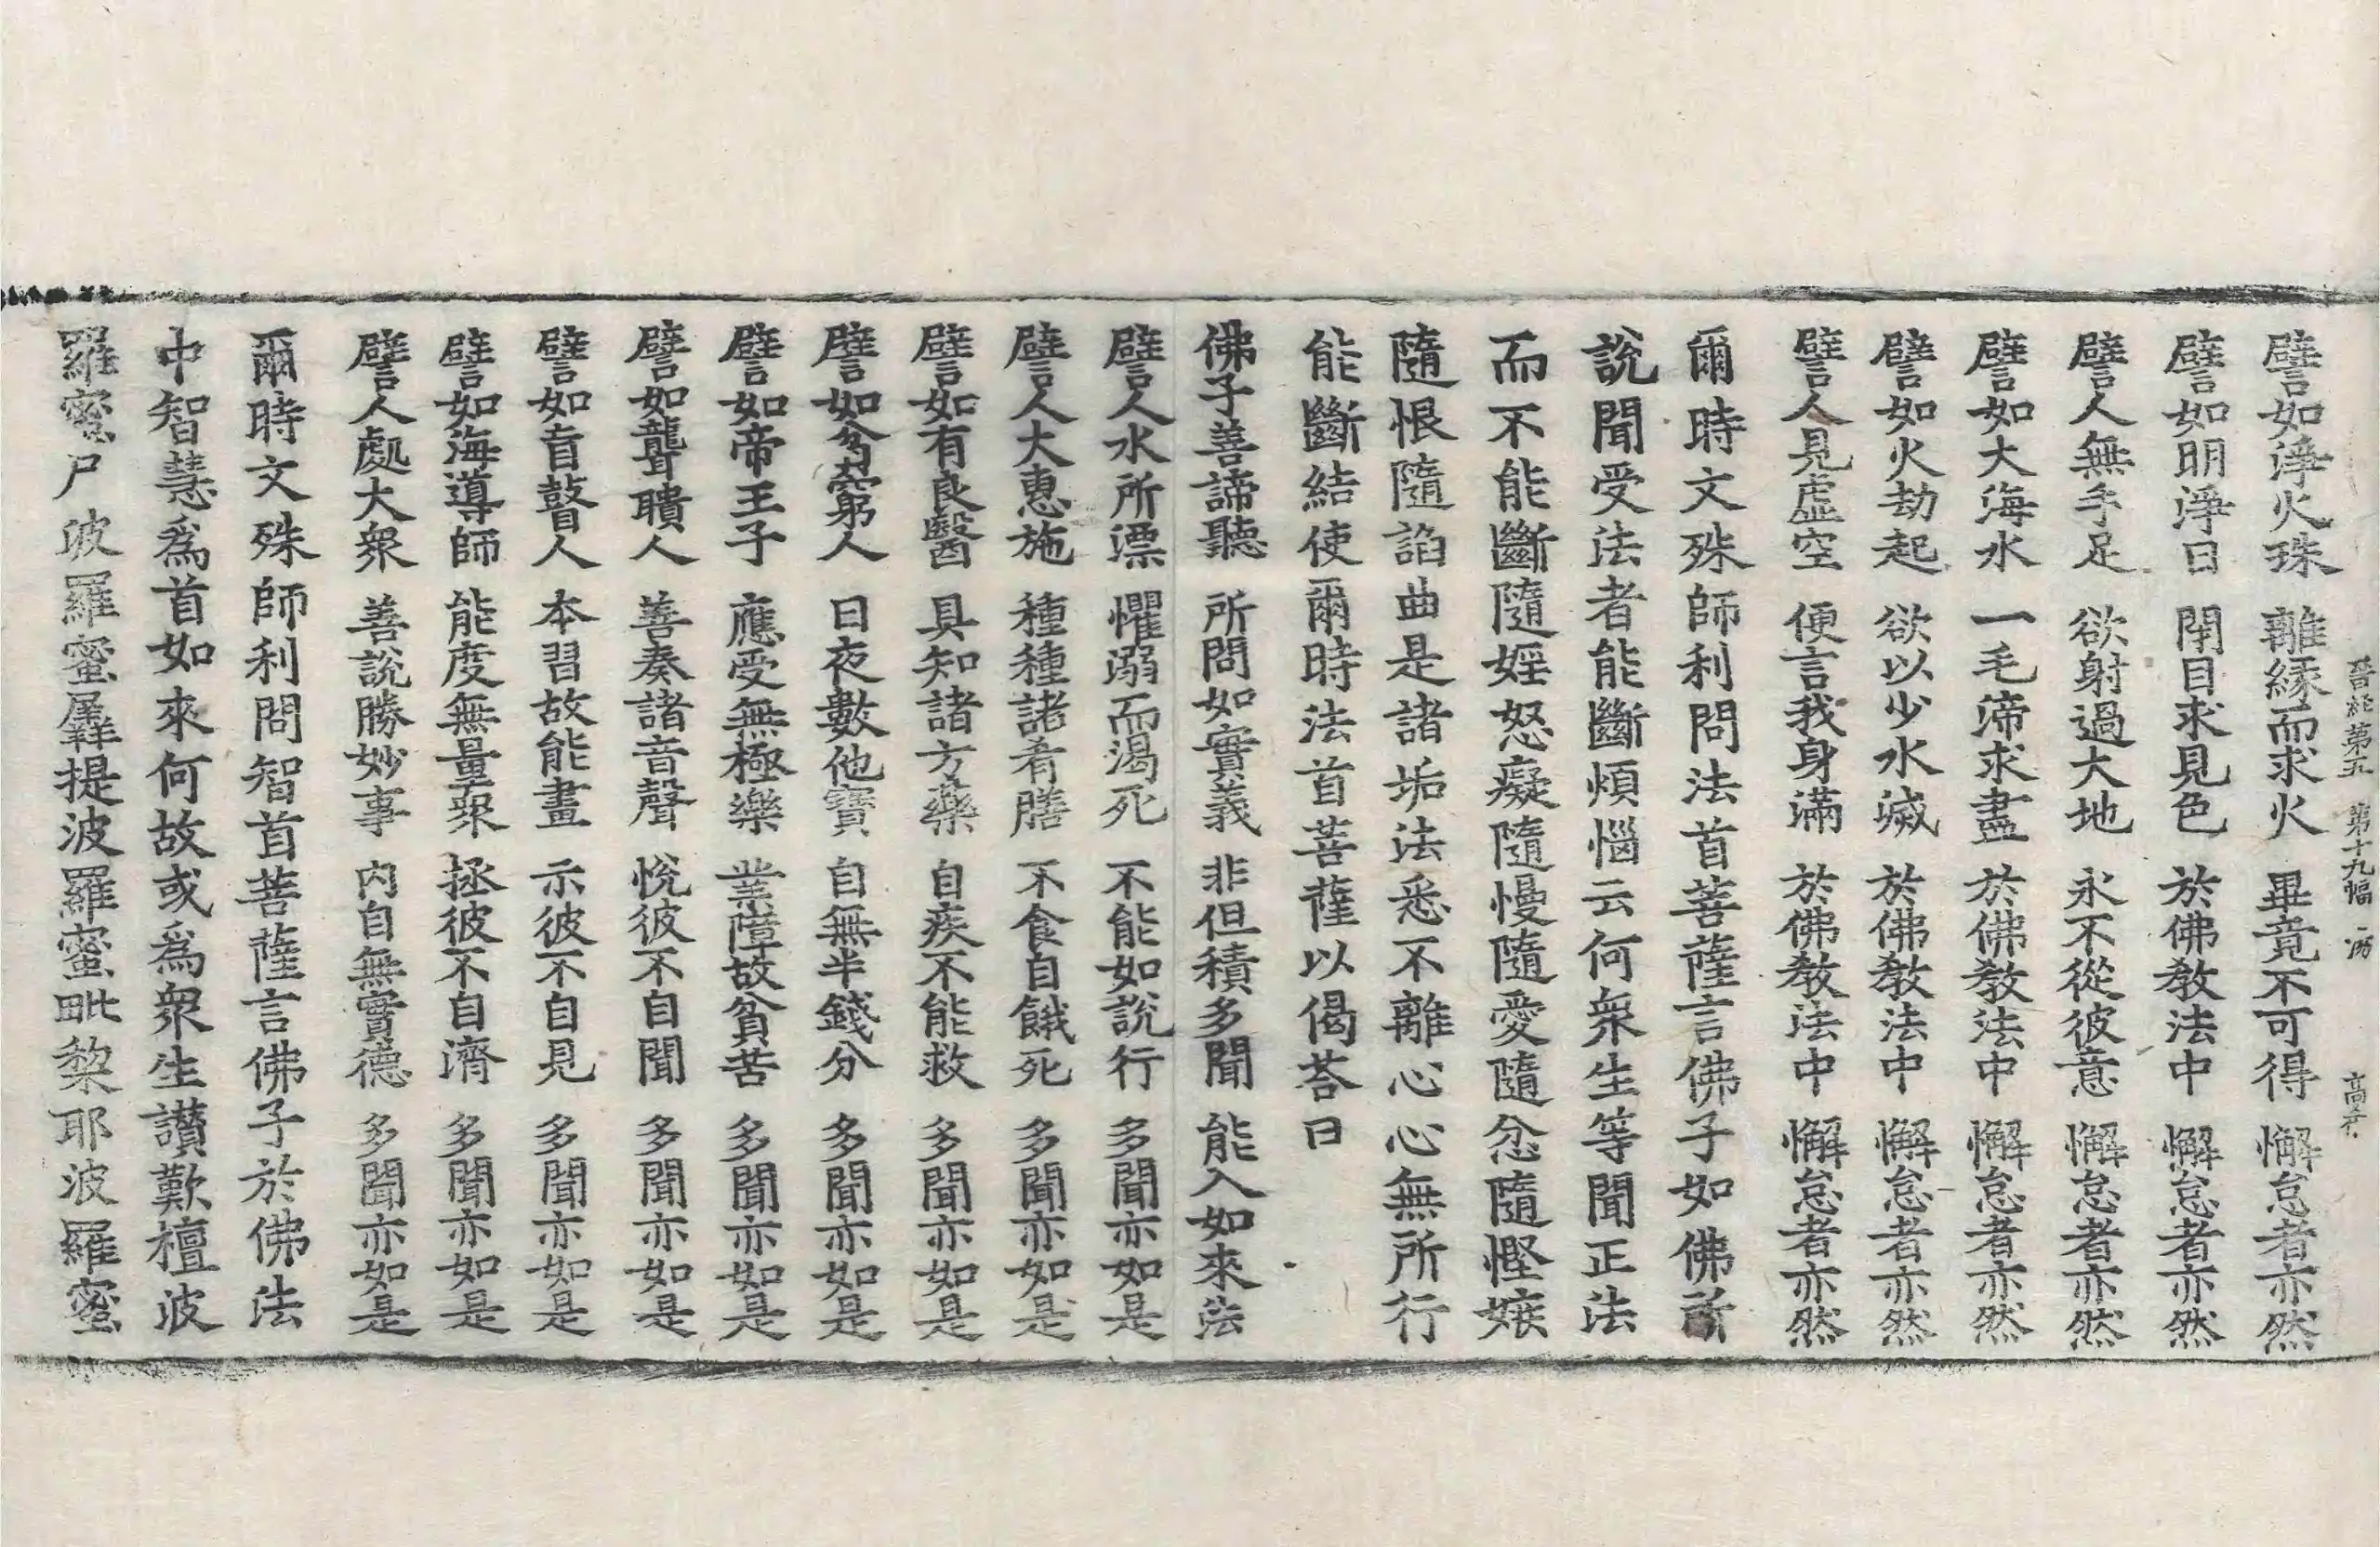 晉經第五 第十九幅 湯 高孝
譬如淨火珠 離緣而求火 畢竟不可得 懈怠者亦然
譬如明淨日 閉目求見色 於佛教法中 懈怠者亦然
譬人無手足 欲射過大地 永不從彼意 懈怠者亦然
譬如大海水 一毛渧求盡 於佛教法中 懈怠者亦然
譬如火劫起 欲以少水滅 於佛教法中 懈怠者亦然
譬人見虛空 便言我身滿 於佛教法中 懈怠者亦然
爾時文殊師利問法首菩薩言佛子如佛所
說聞受法者能斷煩惱云何衆生等聞正法
而不能斷隨婬怒癡隨慢隨愛隨忿隨慳嫉
隨恨隨諂曲是諸垢法悉不離心心無所行
能斷結使爾時法首菩薩以偈荅曰
佛子善諦聽 所問如實義 非但積多聞 能入如來法
譬人水所漂 懼溺而渴死 不能如說行 多聞亦如是
譬人大惠施 種種諸肴膳 不食自餓死 多聞亦如是
譬如有良醫 具知諸方藥 自疾不能救 多聞亦如是
譬如貧窮人 日夜數他寶 自無半錢分 多聞亦如是
譬如帝王子 應受無極樂 業障故貧苦 多聞亦如是
譬如聾聵人 善奏諸音聲 悅彼不自聞 多聞亦如是
譬如盲瞽人 本習故能畫 示彼不自見 多聞亦如是
譬如海導師 能度無量衆 拯彼不自濟 多聞亦如是
譬人處大衆 善說勝妙事 內自無實德 多聞亦如是
爾時文殊師利問智首菩薩言佛子於佛法
中智慧爲首如來何故或爲衆生讚歎檀波
羅蜜尸波羅蜜羼提波羅蜜毗棃耶波羅蜜